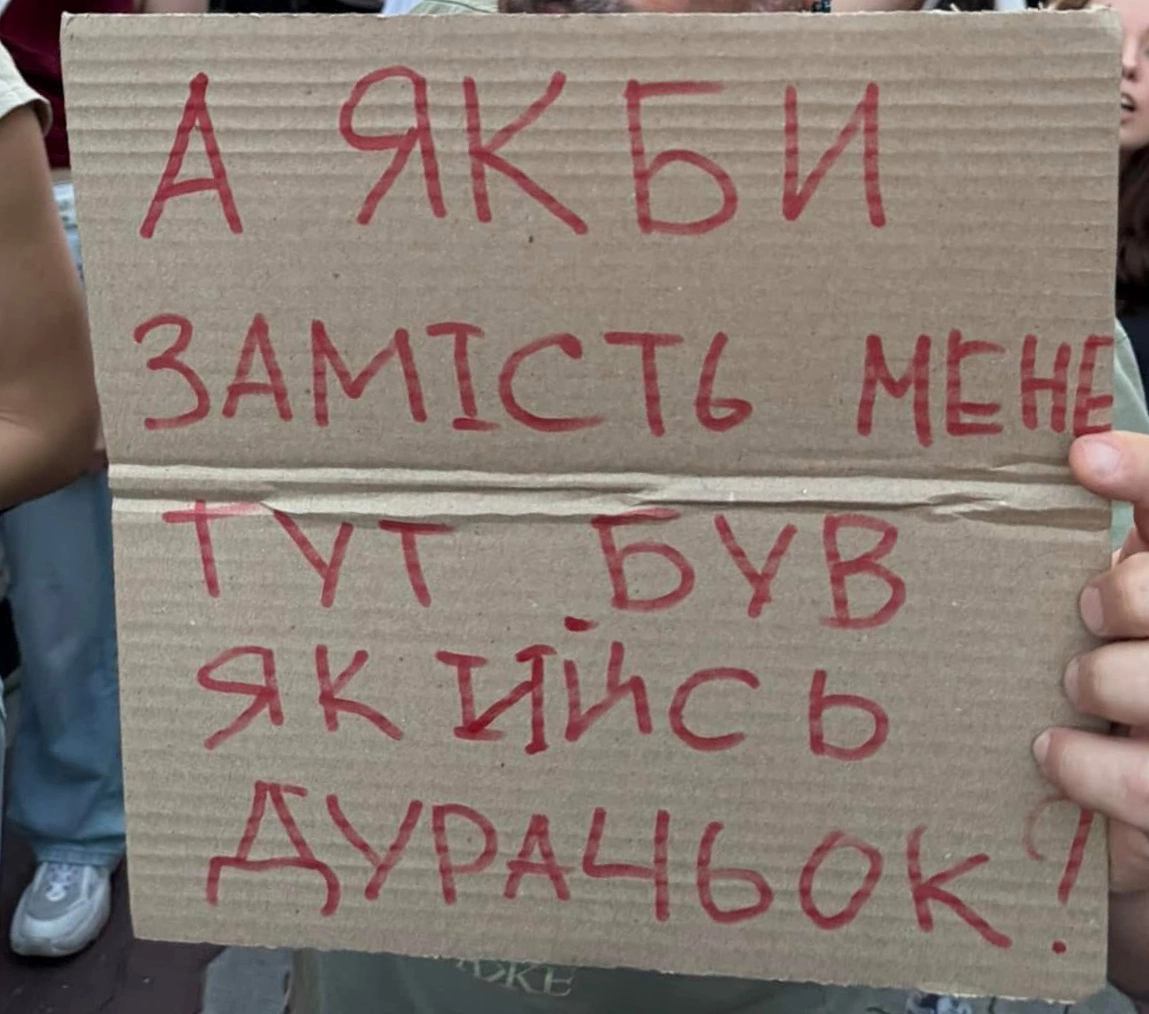 А ЯКБИ
ЗАМІСТЬ МЕНЕ
ТУТ БУВ
ЯКИЙСЬ
ДУРАЧЬОК?